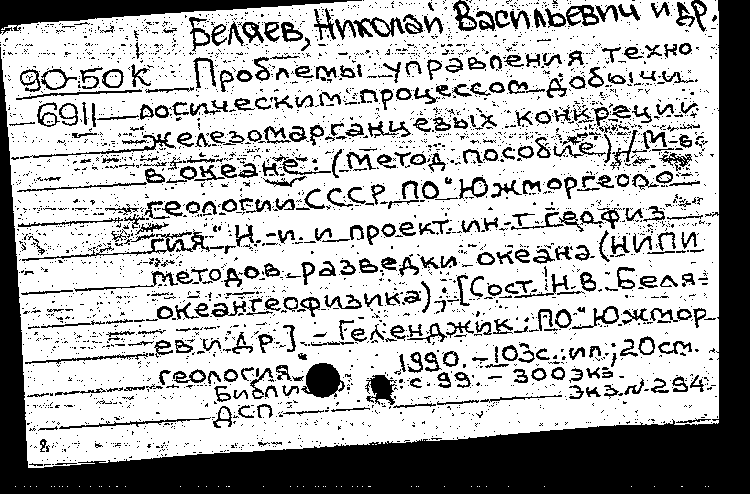 Беляев, Николай Васильевич и др.
90-50К Проблемы управления техно
6911 логическим процессом добычи
железомарганцевых конкреций
в океане: (Метод. пособие) / М-во
геологии СССР, ПО "Южморгеоло
гия", Н.-и. и проект. ин-т геофиз
методов разведки океана (НИПИ
океангеофизика); [Сост. Н.В. Беля-
ев и др.] - Геленджик: ПО "Южмор
геология", 1990. - 103с.: ил.; 20см.
: с. 99. - 300экз.
ДСП Экз.N 294